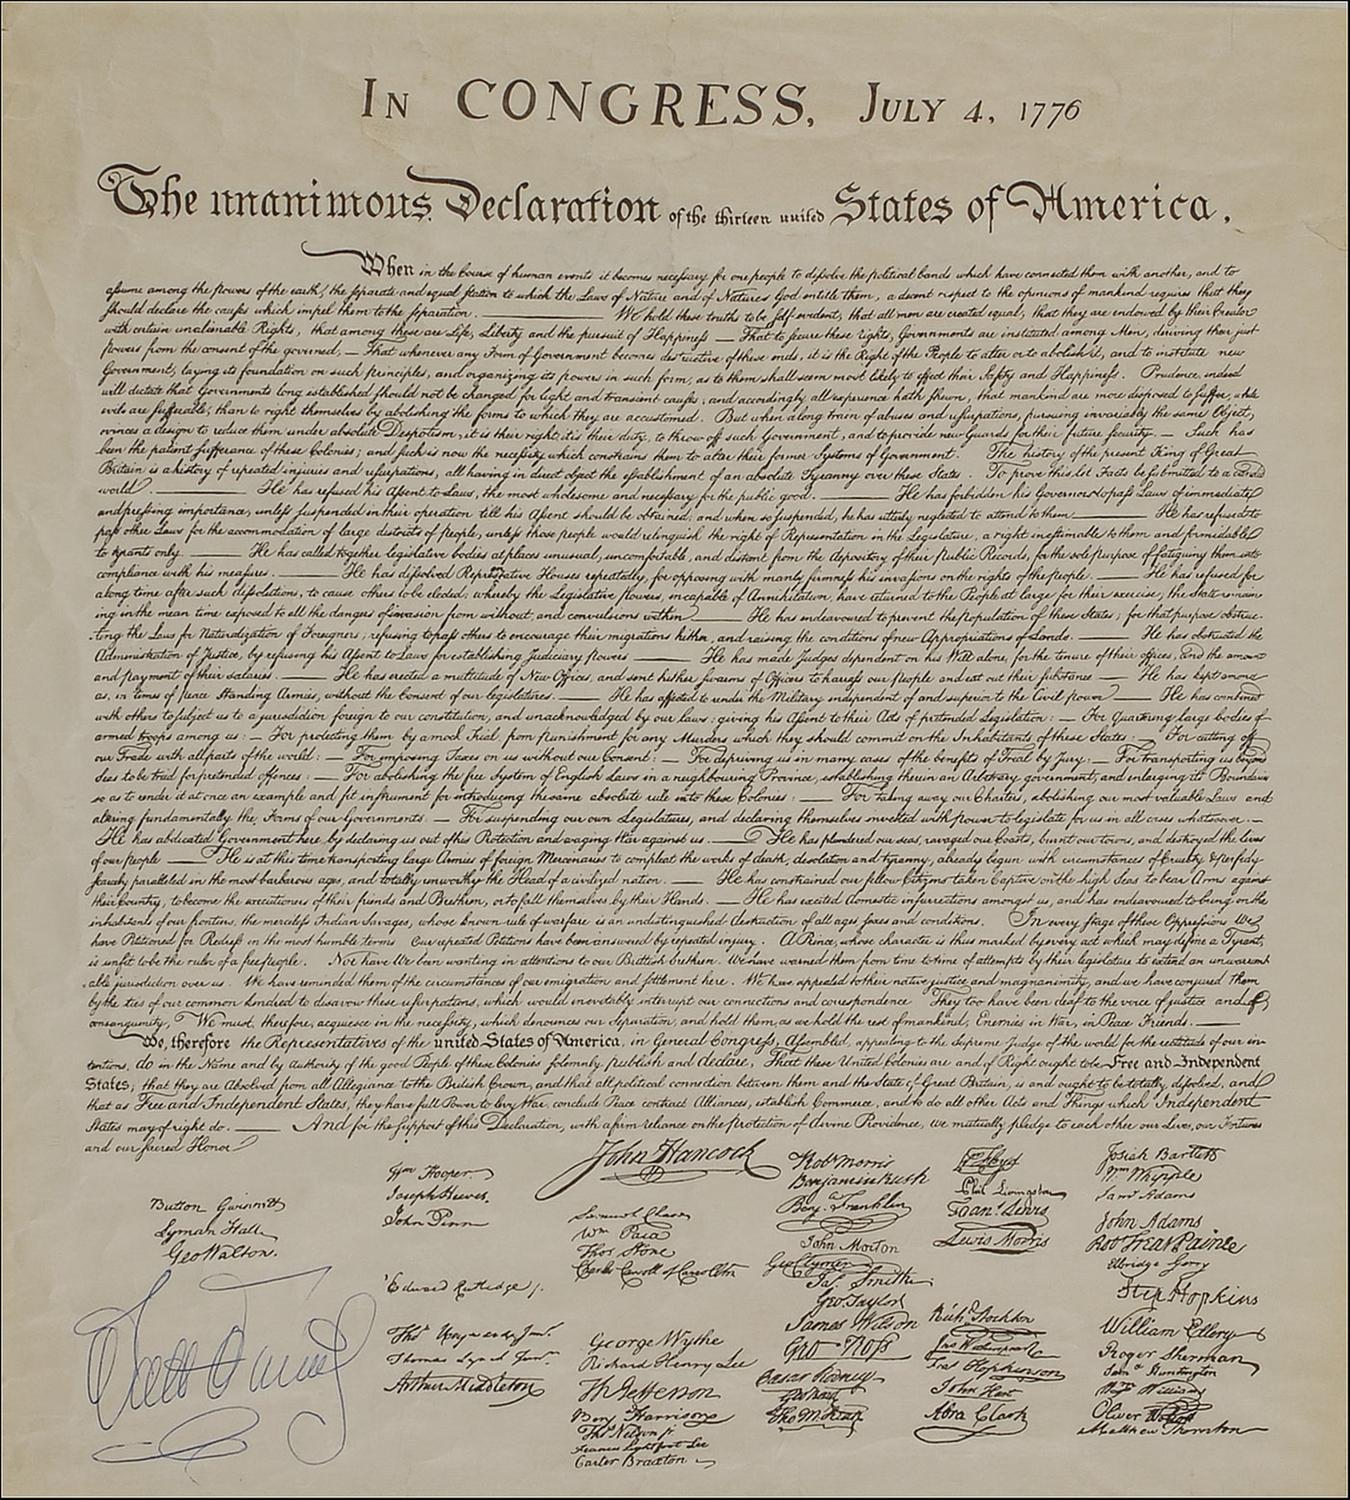 IN CONGRESS, JULY 4, 1776
The unanimous Declaration of the thirteen united States of America.
When in the Course of human events it becomes necessary for one people to dissolve the political bands which have connected them with another, and to
assume among the powers of the earth, the separate and equal station to which the Laws of Nature and of Nature's God entitle them, a decent respect to the opinions of mankind requires that they
should declare the causes which impel them to the separation. We hold these truths to be self-evident, that all men are created equal, that they are endowed by their Creator
with certain unalienable Rights, that among these are Life, Liberty and the pursuit of Happiness — That to secure these rights, Governments are instituted among Men, deriving their just
powers from the consent of the governed, — That whenever any Form of Government becomes destructive of these ends, it is the Right of the People to alter or to abolish it, and to institute new
Government, laying its foundation on such principles, and organizing its powers in such form, as to them shall seem most likely to effect their Safety and Happiness. Prudence, indeed
will dictate that Governments long established should not be changed for light and transient causes; and accordingly all experience hath shewn, that mankind are more disposed to suffer, while
evils are sufferable, than to right themselves by abolishing the forms to which they are accustomed. But when a long train of abuses and usurpations, pursuing invariably the same Object,
evinces a design to reduce them under absolute Despotism, it is their right, it is their duty, to throw off such Government, and to provide new Guards for their future security. — Such has
been the patient sufferance of these Colonies; and such is now the necessity which constrains them to alter their former Systems of Government. The history of the present King of Great
Britain is a history of repeated injuries and usurpations, all having in direct object the establishment of an absolute Tyranny over these States. To prove this, let Facts be submitted to a candid
world. He has refused his Assent to Laws, the most wholesome and necessary for the public good. He has forbidden his Governors to pass Laws of immediate
and pressing importance, unless suspended in their operation till his Assent should be obtained; and when so suspended, he has utterly neglected to attend to them. He has refused to
pass other Laws for the accommodation of large districts of people, unless those people would relinquish the right of Representation in the Legislature, a right inestimable to them and formidable
to tyrants only. He has called together legislative bodies at places unusual, uncomfortable, and distant from the depository of their Public Records, for the sole purpose of fatiguing them into
compliance with his measures. He has dissolved Representative Houses repeatedly, for opposing with manly firmness his invasions on the rights of the people. He has refused for
a long time, after such dissolutions, to cause others to be elected; whereby the Legislative powers, incapable of Annihilation, have returned to the People at large for their exercise; the State remain-
ing in the mean time exposed to all the dangers of invasion from without, and convulsions within. He has endeavoured to prevent the population of these States; for that purpose obstruc-
ting the Laws for Naturalization of Foreigners; refusing to pass others to encourage their migrations hither, and raising the conditions of new Appropriations of Lands. He has obstructed the
Administration of Justice, by refusing his Assent to Laws for establishing Judiciary powers He has made Judges dependent on his Will alone, for the tenure of their offices, and the amount
and payment of their salaries. He has erected a multitude of New Offices, and sent hither swarms of Officers to harrass our people and eat out their substance He has kept among
us, in times of peace Standing Armies, without the Consent of our legislatures. He has affected to render the Military independent of and superior to the Civil power He has combined
with others to subject us to a jurisdiction foreign to our constitution, and unacknowledged by our laws; giving his Assent to their Acts of pretended Legislation: — For Quartering large bodies of
armed troops among us: — For protecting them by a mock Trial, from punishment for any Murders which they should commit on the Inhabitants of these States: — For cutting off
our Trade with all parts of the world: — For imposing Taxes on us without our Consent: — For depriving us in many cases of the benefits of Trial by Jury: — For transporting us beyond
Seas to be tried for pretended offences: — For abolishing the free System of English Laws in a neighbouring Province, establishing therein an Arbitrary government, and enlarging its Boundaries
so as to render it at once an example and fit instrument for introducing the same absolute rule into these Colonies: For taking away our Charters, abolishing our most valuable Laws and
altering fundamentally the Forms of our Governments — For suspending our own Legislatures, and declaring themselves invested with power to legislate for us in all cases whatsoever. —
He has abdicated Government here by declaring us out of his Protection and waging War against us. He has plundered our seas, ravaged our Coasts, burnt our towns, and destroyed the lives
of our people He is at this time transporting large Armies of foreign Mercenaries to compleat the works of death, desolation and tyranny, already begun with circumstances of Cruelty & Perfidy
scarcely paralleled in the most barbarous ages, and totally unworthy the Head of a civilized nation. He has constrained our fellow Citizens taken Captive on the high Seas to bear Arms against
their Country, to become the executioners of their friends and Brethren, or to fall themselves by their Hands. He has excited domestic insurrections amongst us, and has endeavoured to bring on the
inhabitants of our frontiers, the merciless Indian Savages, whose known rule of warfare is an undistinguished destruction of all ages sexes and conditions. In every stage of these Oppressions We
have Petitioned for Redress in the most humble terms Our repeated Petitions have been answered by repeated injury. A Prince, whose character is thus marked by every act which may define a Tyrant,
is unfit to be the ruler of a free people. Nor have We been wanting in attentions to our Brittish brethren. We have warned them from time to time of attempts by their legislature to extend an unwarrant-
able jurisdiction over us. We have reminded them of the circumstances of our emigration and settlement here. We have appealed to their native justice and magnanimity, and we have conjured them
by the ties of our common kindred to disavow these usurpations, which would inevitably interrupt our connections and correspondence They too have been deaf to the voice of justice and of
consanguinity. We must, therefore, acquiesce in the necessity, which denounces our Separation, and hold them, as we hold the rest of mankind, Enemies in War, in Peace Friends.
We, therefore the Representatives of the united States of America, in General Congress, Assembled, appealing to the Supreme Judge of the world for the rectitude of our in-
tentions, do in the Name and by authority of the good People of these Colonies solemnly publish and declare, That these United Colonies are and of Right ought to be Free and Independent
States; that they are Absolved from all Allegiance to the British Crown, and that all political connection between them and the State of Great Britain, is and ought to be totally dissolved, and
that as Free and Independent States, they have full Power to levy War, conclude Peace contract Alliances, establish Commerce, and to do all other Acts and Things which Independent
States may of right do. And for the support of this Declaration, with a firm reliance on the protection of divine Providence, we mutually pledge to each other our Lives, our Fortunes
and our sacred Honor
Button Gwinnett
Lyman Hall
Geo Walton.
Wm Hooper
Joseph Hewes,
John Penn
Edward Rutledge /.
Thos Heyward Junr.
Thomas Lynch Junr.
Arthur Middleton
John Hancock
Samuel Chase
Wm Paca
Thos Stone
Charles Carroll of Carrollton
George Wythe
Richard Henry Lee
Th Jefferson
Benj Harrison
Thos Nelson jr.
Francis Lightfoot Lee
Carter Braxton
Robt Morris
Benjamin Rush
Benja Franklin
John Morton
Geo Clymer
Jas. Smith
Geo. Taylor
James Wilson
Geo Ross
Caesar Rodney
Geo Read
Tho M:Kean
Wm Floyd
Phil. Livingston
Frans. Lewis
Lewis Morris
Richd. Stockton
Jno Witherspoon
Fras Hopkinson
John Hart
Abra Clark
Josiah Bartlett
Wm Whipple
Saml Adams
John Adams
Robt Treat Paine
Elbridge Gerry
Step Hopkins
William Ellery
Roger Sherman
Samel Huntington
Wm Williams
Oliver Wolcott
Matthew Thornton